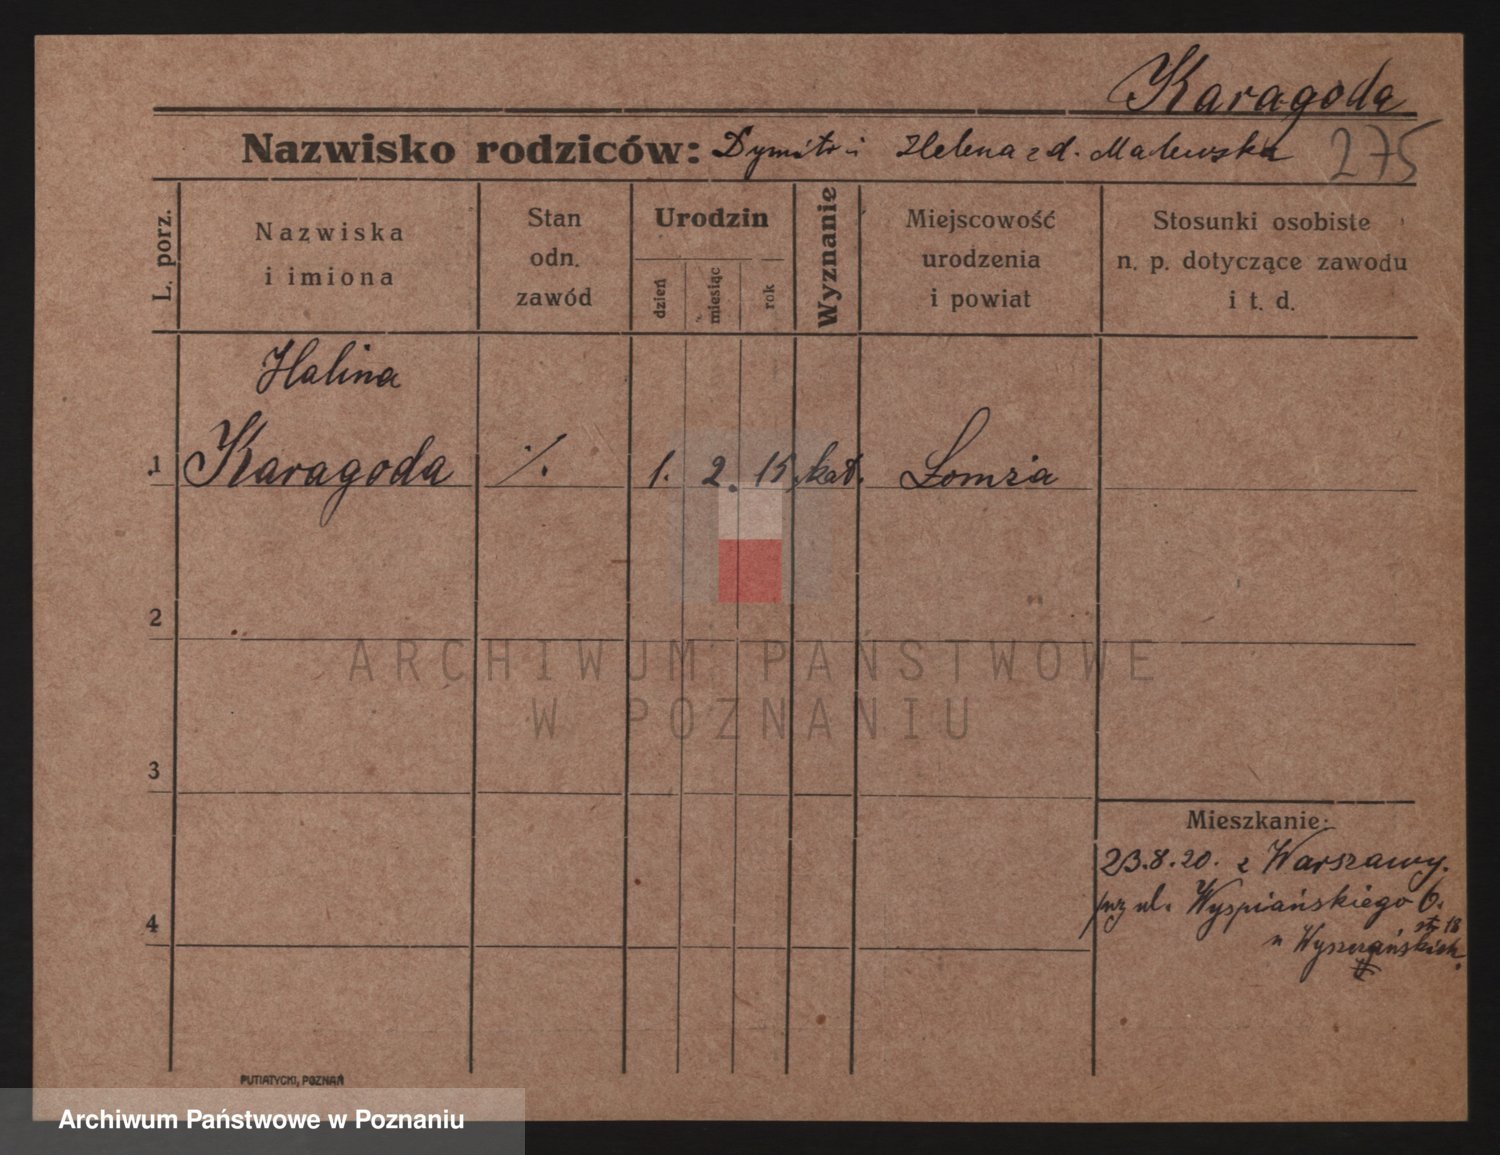 Karagoda
Nazwisko rodziców: Dymitr i Helena z d. Malewska
275
L. porz.
Nazwiska
i imiona
Stan
odn.
zawód
Urodzin
dzień
miesiąc
rok
Wyznanie
Miejscowość
urodzenia
i powiat
Stosunki osobiste
n. p. dotyczące zawodu
i t. d.
Halina
1 Karagoda ·/. 1. 2. 15 kat. Łomża
2
ARCHIWUM PAŃSTWOWE
W POZNANIU
3
Mieszkanie:
23.8.20. z Warszawy.
przy ul. Wyspiańskiego 6.
4
18
u
PUTIATYCKI, POZNAŃ
Archiwum Państwowe w Poznaniu